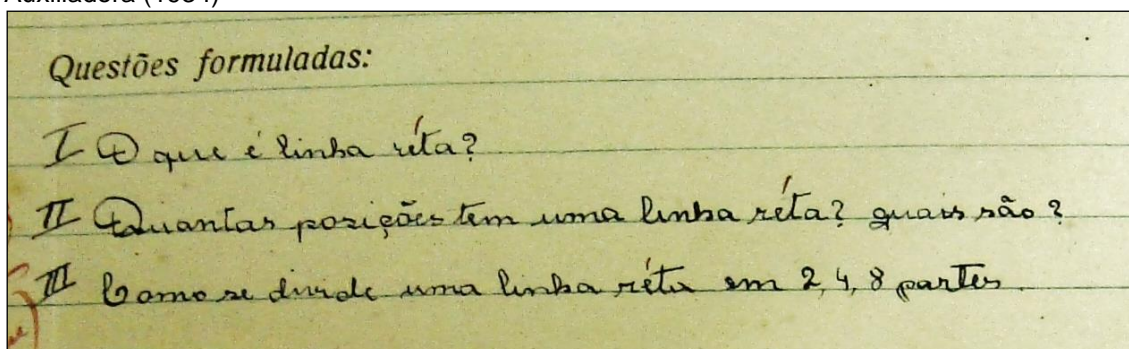 Auxiliadora (1954)
Questões formuladas:
I O que é linha réta?
II Quantas posições tem uma linha réta? quais são?
III Como se divide uma linha réta em 2, 4, 8 partes.